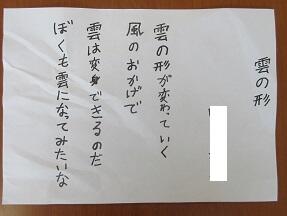 雲の形
雲の形が変わっていく
風のおかげで
雲は変身できるのだ
ぼくも雲になってみたいな